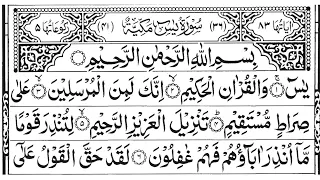 اٰیَاتُهَا ۸۳ (۳۶) سُوْرَةُ یٰسٓ مَکِّیَّةٌ (۴۱) رُکُوْعَاتُهَا ۵
بِسْمِ اللهِ الرَّحْمٰنِ الرَّحِیْمِ
یٰسٓ ۝۱ وَالْقُرْاٰنِ الْحَکِیْمِ ۝۲ اِنَّكَ لَمِنَ الْمُرْسَلِیْنَ ۝۳ عَلٰی
صِرَاطٍ مُّسْتَقِیْمٍ ۝۴ تَنْزِیْلَ الْعَزِیْزِ الرَّحِیْمِ ۝۵ لِتُنْذِرَ قَوْمًا
مَّاۤ اُنْذِرَ اٰبَآؤُهُمْ فَهُمْ غٰفِلُوْنَ ۝۶ لَقَدْ حَقَّ الْقَوْلُ عَلٰۤی